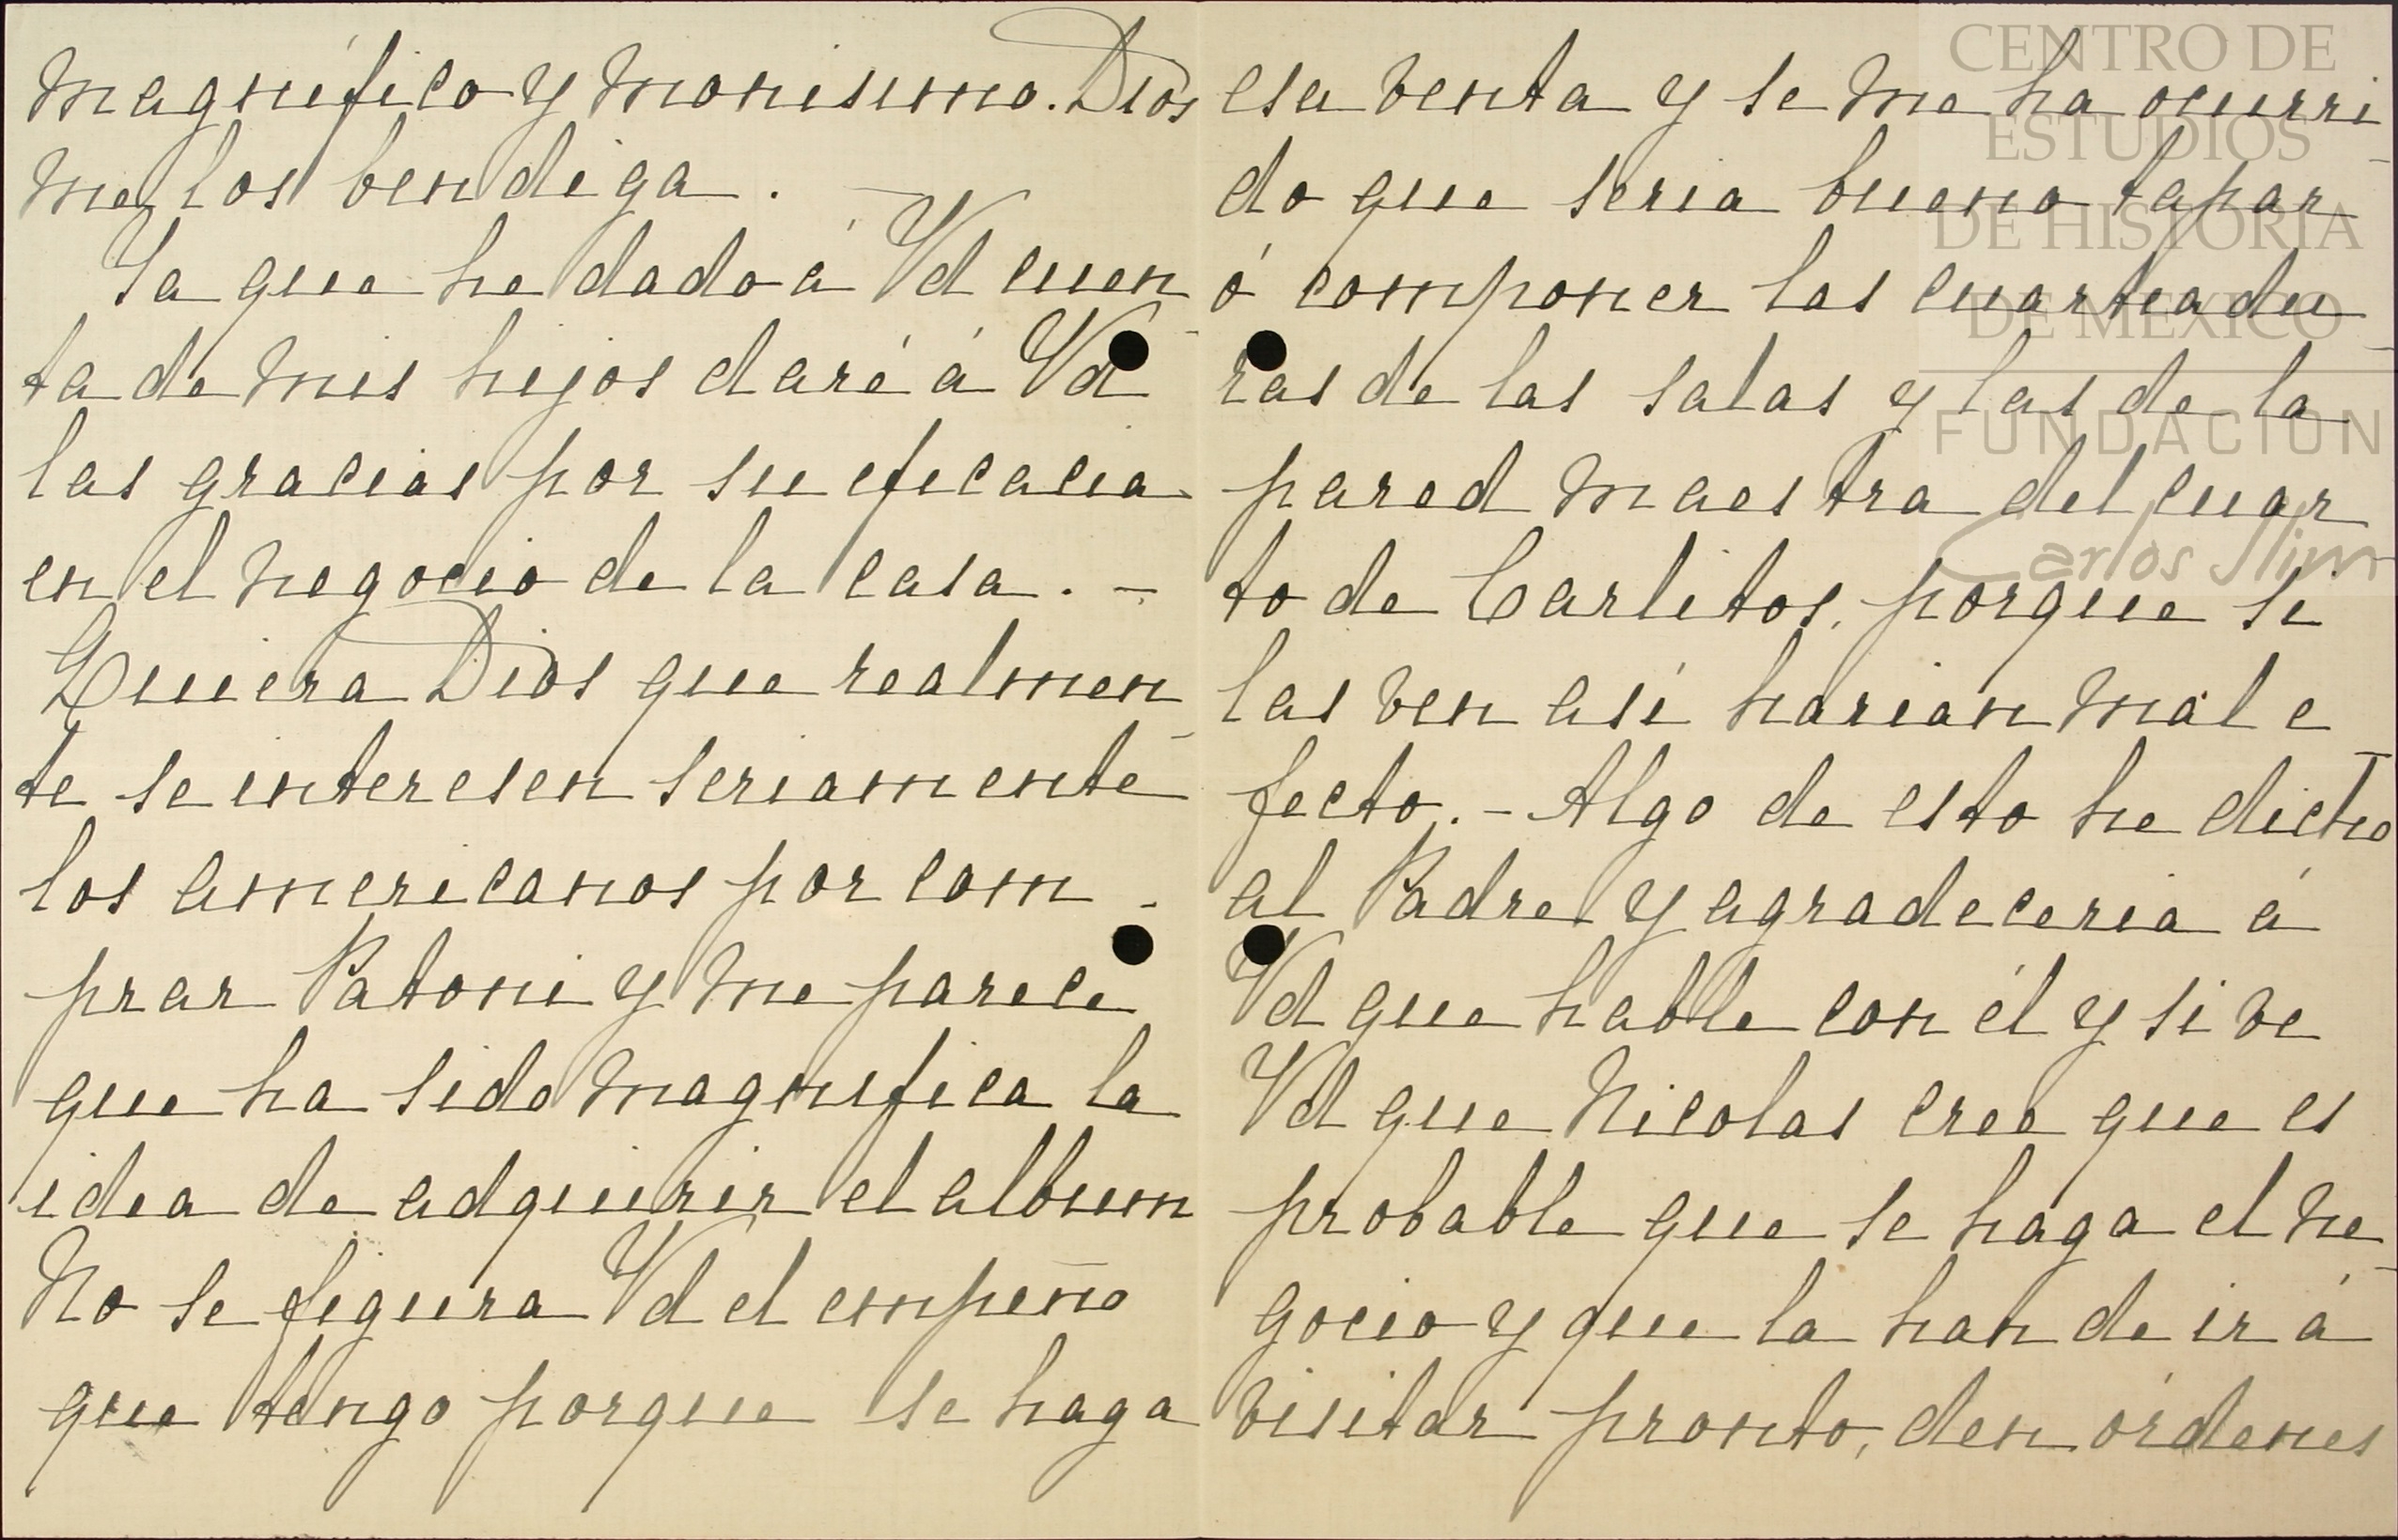 magnífico y monisimo. Dios
me los bendiga. —
Ya que he dado á Vd cuen
ta de mis hijos daré á Vd
las gracias por su eficacia
en el negocio de la casa. —
Quiera Dios que realmen-
te se interesen seriamente
los americanos por com-
prar Patoni y me parece
que ha sido magnifica la
idea de adquirir el album
No se figura Vd el empeño
que tengo porque se haga
esa venta y se me ha ocurri-
do que seria bueno tapar
ó componer las cuarteadu-
ras de las salas y las de la
pared maestra del cuar
to de Carlitos, porque si
las ven así harian mal e-
fecto. - Algo de esto he dicho
al Padre y agradeceria á
Vd que hable con él y si ve
Vd que Nicolas cree que es
probable que se haga el ne-
gocio y que la han de ir á
visitar pronto, den órdenes
CENTRO DE
ESTUDIOS
DE HISTORIA
DE MEXICO
FUNDACION
Carlos Slim